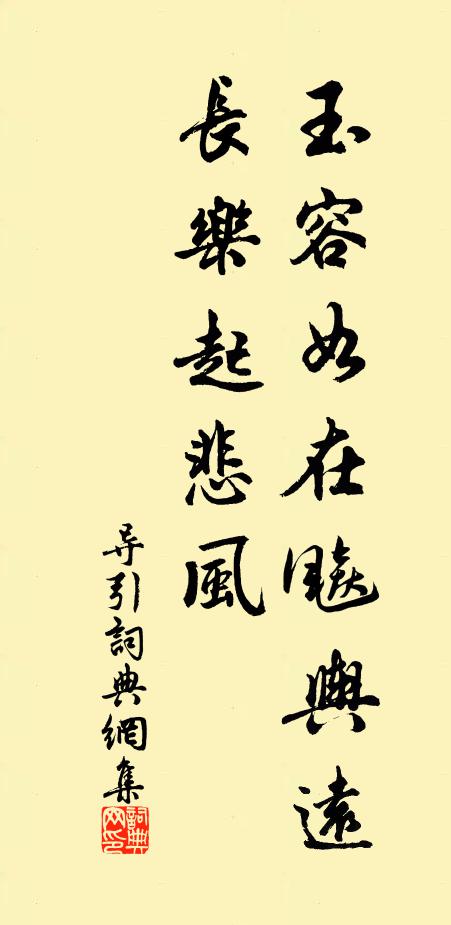 玉容如在飈輿遠
長樂起悲風
导引詞典網集
詞典网印